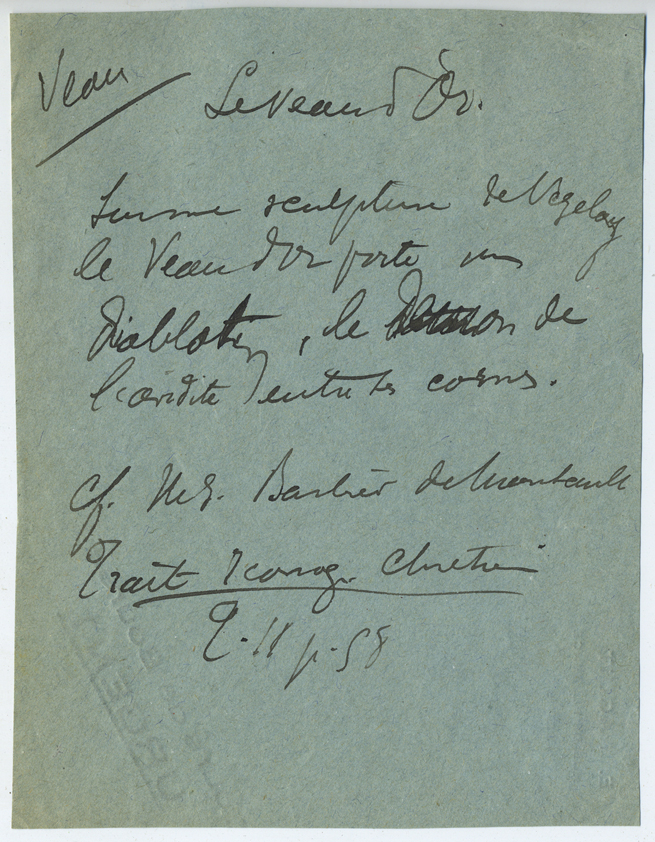 Veau
Le Veau d'Or.
Sur une sculpture de Vezelay
le Veau d'Or porte un
Diablotin, le Demon de
l'avidité entre ses cornes.
Cf. Mgr. Barbier de Montault
Trait Iconog. Chretien
T. II p. 58
URGENT